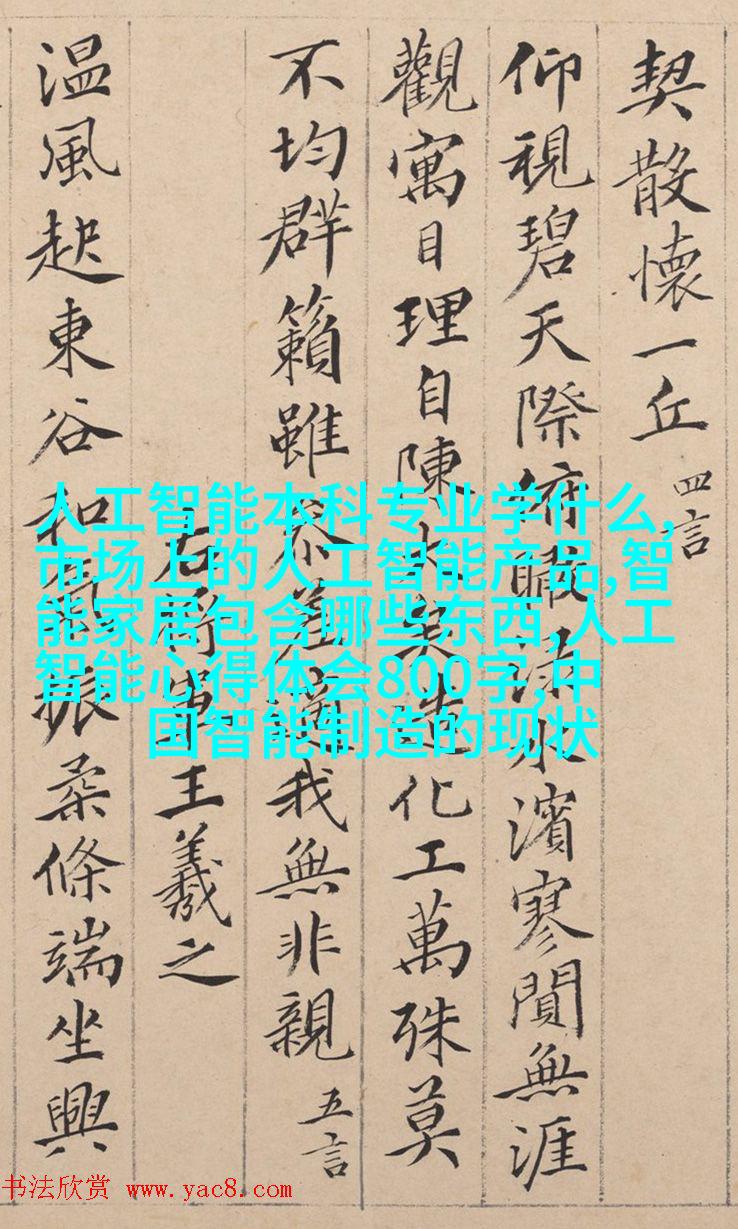 契散懷一丘 四言
仰視碧天際俯瞰淥水濱寥閴無涯
觀寓目理自陳大矣造化工萬殊莫
不均群籟雖參差適我無非親 五言
右將軍王羲之
温風起東谷和氣振柔條端坐興
人工智能本科专业学什么,
市场上的人工智能产品,智
能家居包含哪些东西,人工
智能心得体会800字,中
国智能制造的现状
书法欣赏 www.yac8.com